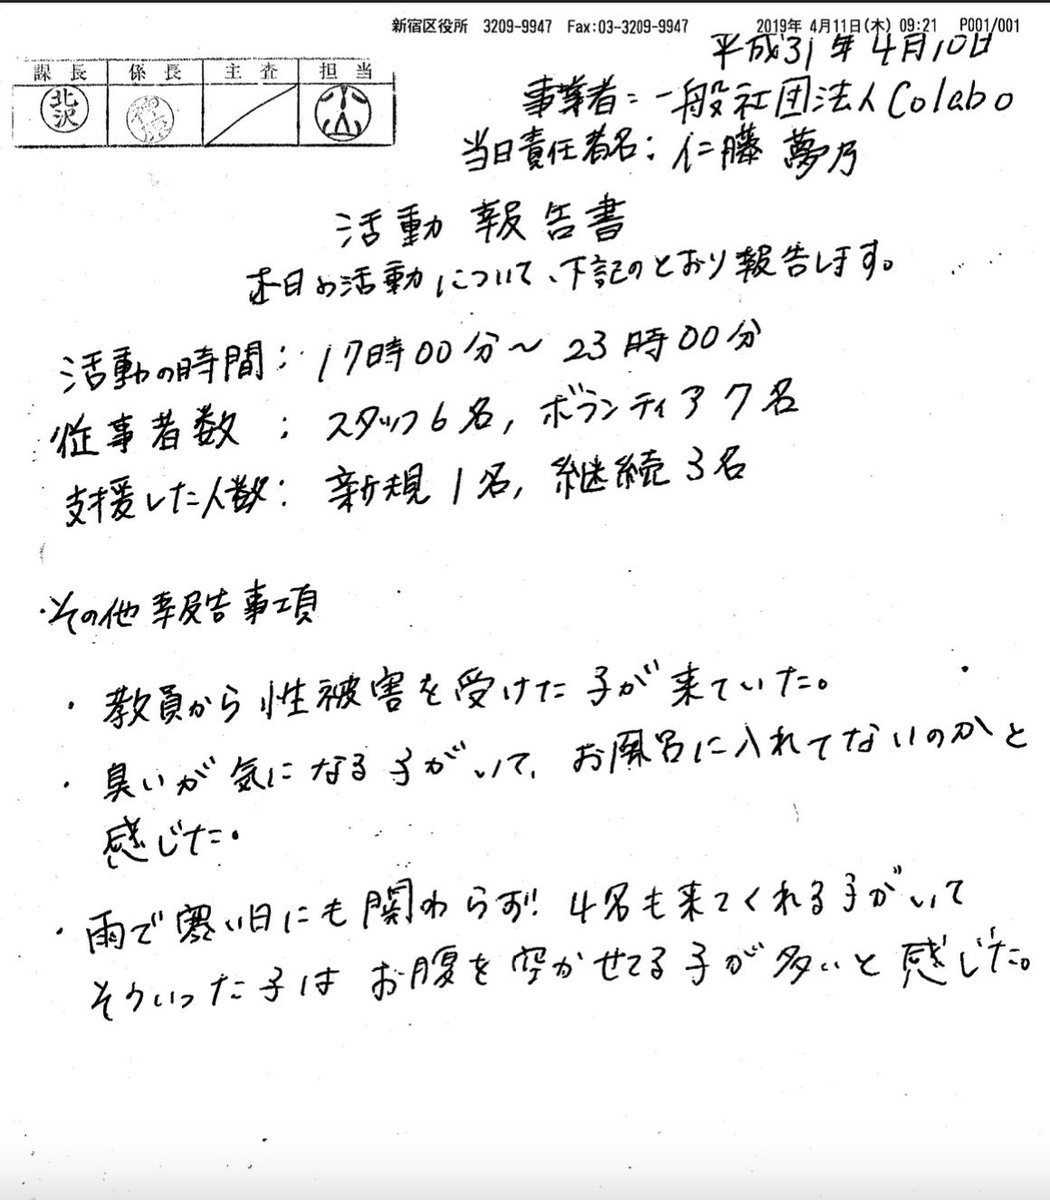 新宿区役所 3209-9947 Fax:03-3209-9947 2019年 4月11日(木) 09:21 P001/001
平成31年4月10日
課長 係長 主査 担当
北沢
事業者:一般社団法人Colabo
当日責任者名:仁藤 夢乃
活動報告書
本日の活動について、下記のとおり報告します。
活動の時間:17時00分〜23時00分
従事者数:スタッフ6名,ボランティア7名
支援した人数:新規1名,継続3名
・その他報告事項
・教員から性被害を受けた子が来ていた。
・臭いが気になる子がいて、お風呂に入れてないのかと
感じた。
・雨で寒い日にも関わらず!4名も来てくれる子がいて
そういった子はお腹を空かせてる子が多いと感じた。